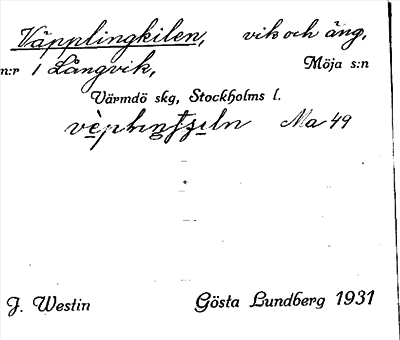 Väpplingkilen, vik och äng,
n:r 1 Långvik, Möja s:n
Värmdö skg, Stockholms l.
Ma 49
J. Westin Gösta Lundberg 1931